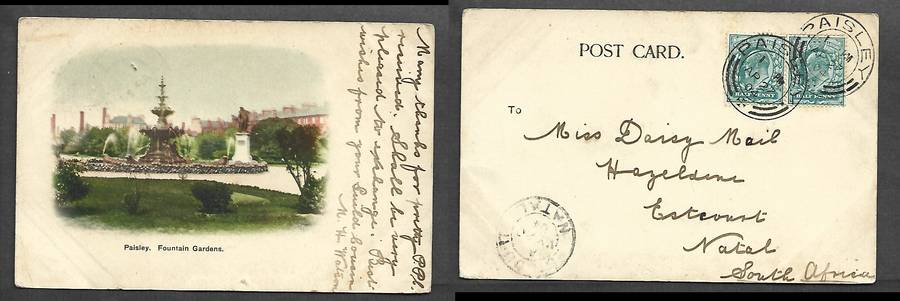 Many thanks for pretty P.P.C.
received. Shall be very
pleased to exchange. Best
wishes from your
M. H. Watson
Paisley. Fountain Gardens.
POST CARD.
PAISLEY
PAISLEY
HALFPENNY
HALFPENNY
To
Miss Daisy Mail
Hazeldene
Estcourt
Natal
South Africa
NATAL